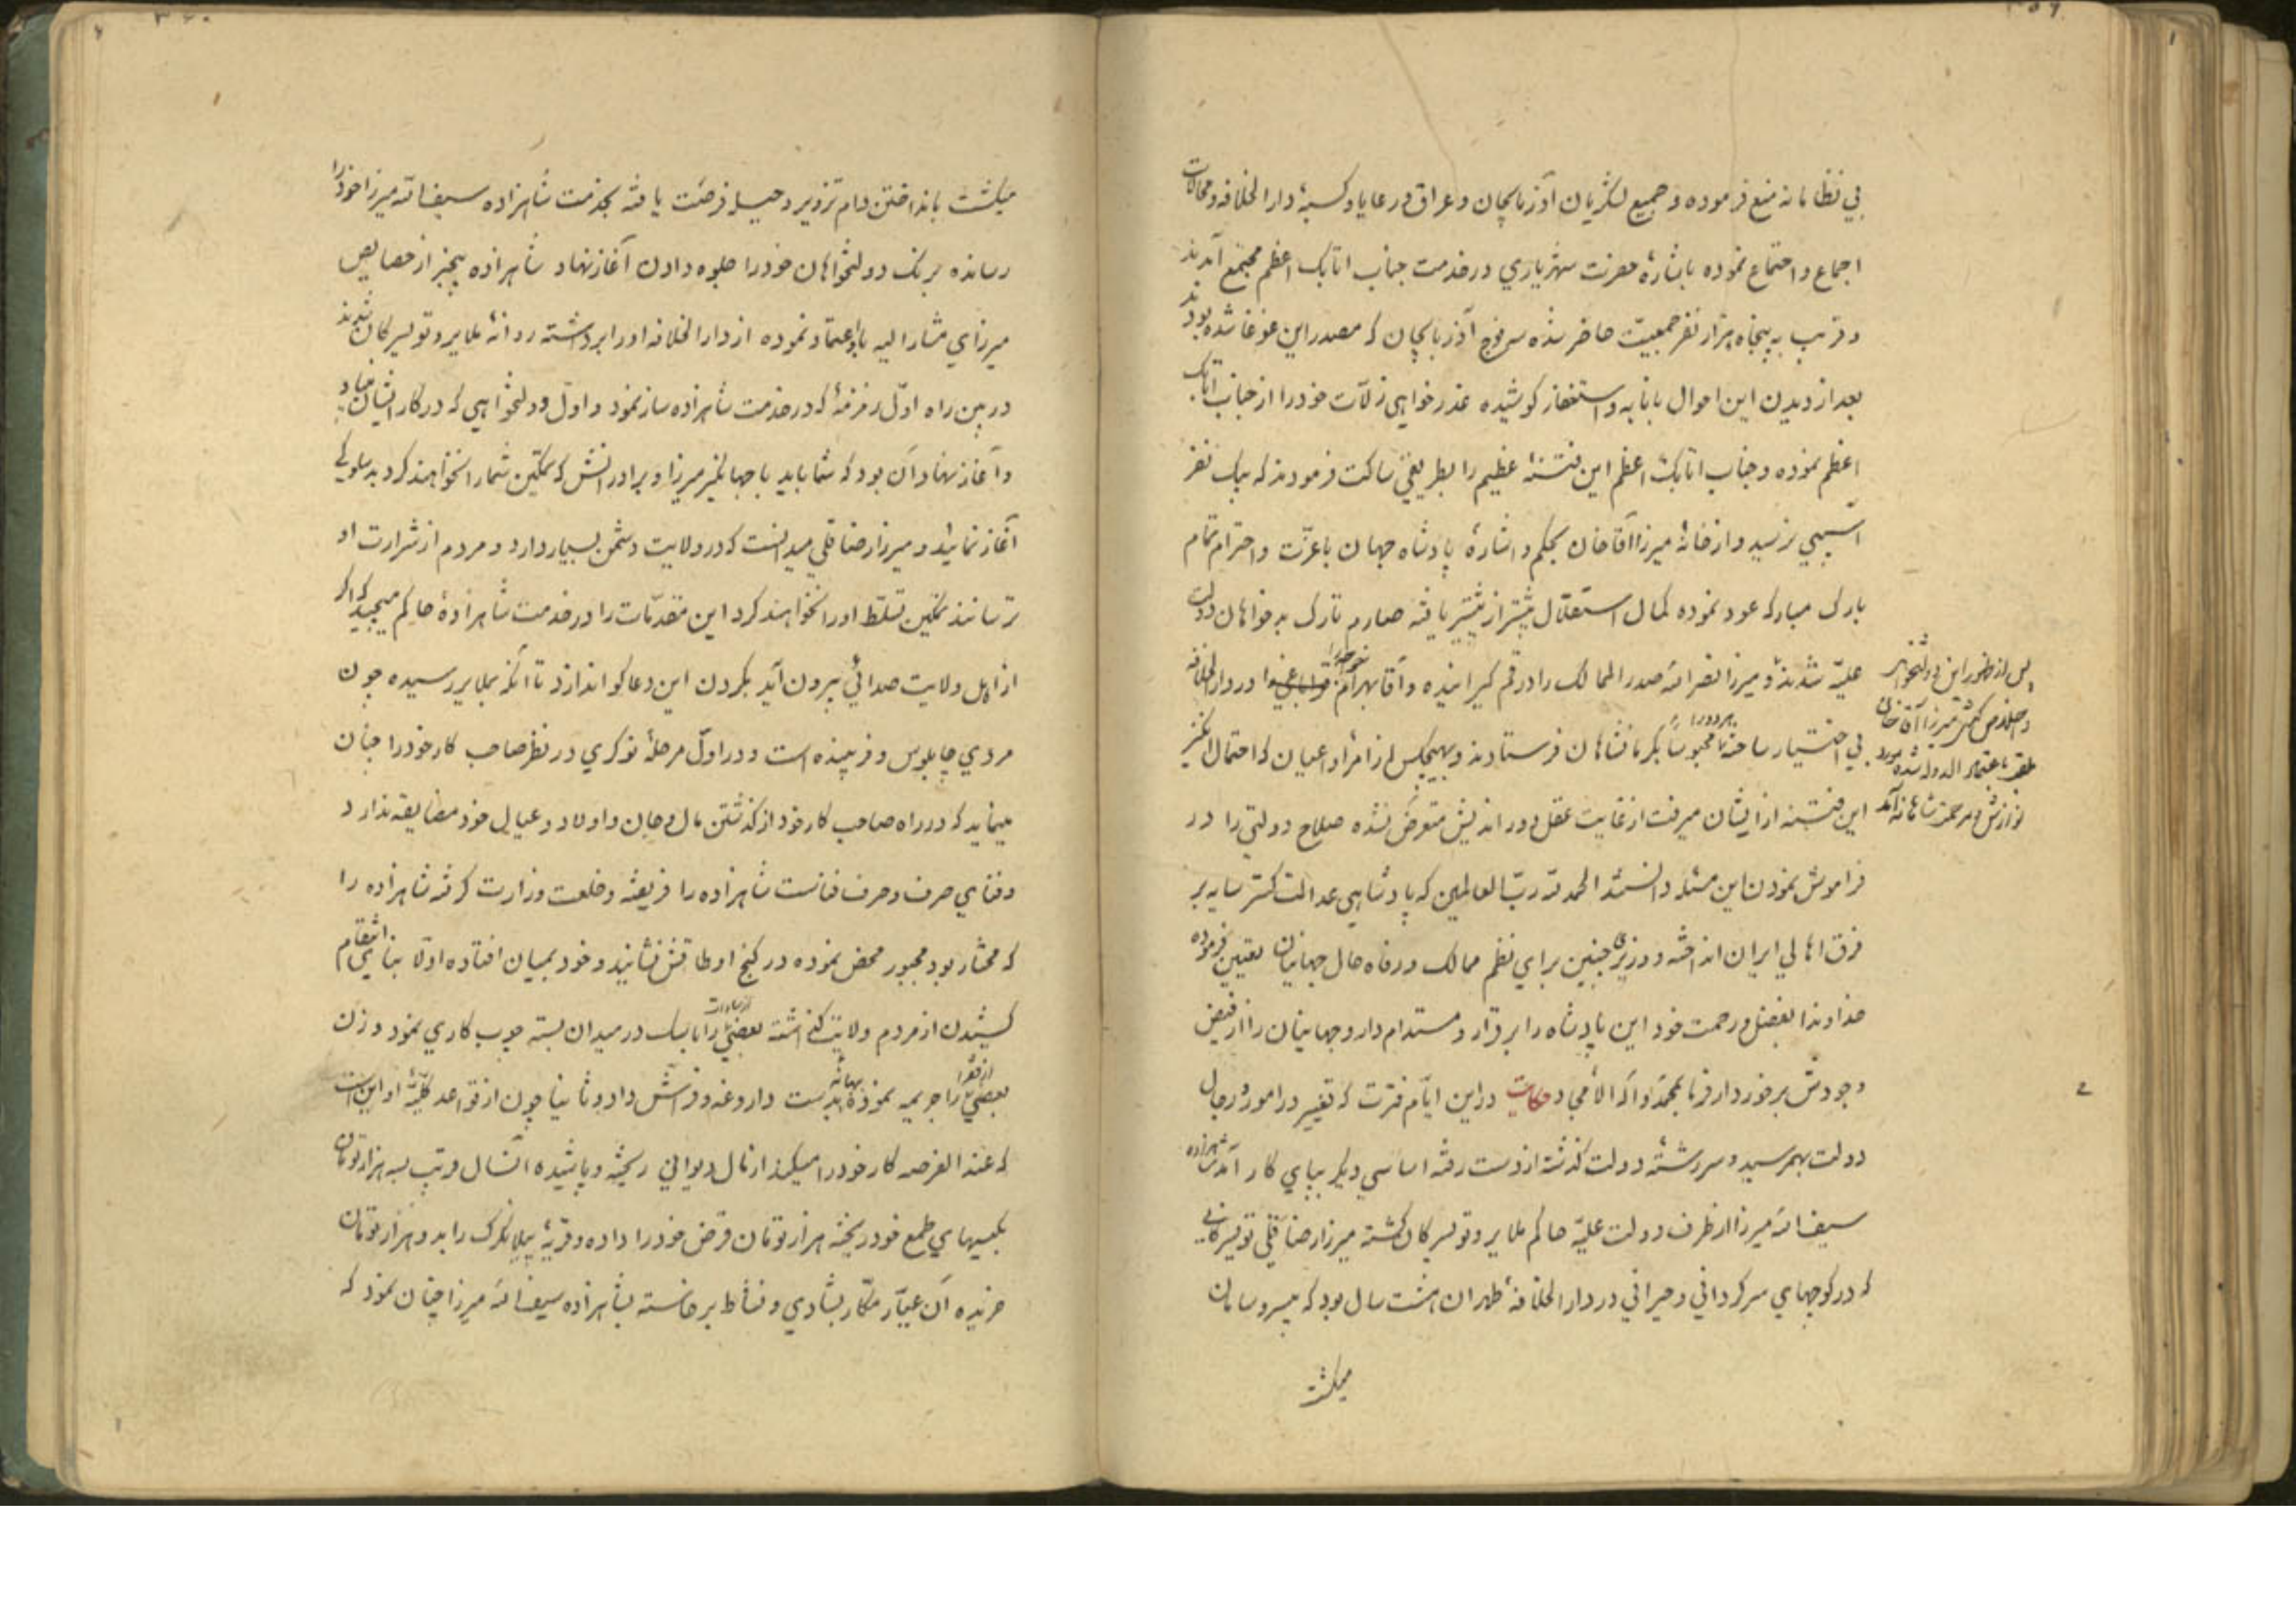 بی نظامانه منع فرموده و جمیع لشکریان آذربایجان و عراق و رعایا و کسبهٔ دار الخلافه و محالات
اجماع و اجتماع نموده باشارهٔ حضرت شهریاری در خدمت جناب اتابک اعظم مجتمع آمدند
و قریب به پنجاه هزار نفر جمعیت حاضر شده سه فوج آذربایجان که مصدر این غوغا شده بودند
بعد از دیدن این احوال بانابه و استغفار کوشیده عذر خواهی زلات خود را از جناب اتابک
اعظم نموده و جناب اتابک اعظم این فتنهٔ عظیم را بطریقی ساکت فرمودند که بیک نفر
آسیبی نرسید و از خانهٔ میرزا آقاخان بحکم و اشارهٔ پادشاه جهان باعزت و احترام تمام
بارک مبارکه عود نموده کمال استقلال بیشتر از پیشتر یافته صارم تارک بدخواهان دولت
علیّه شدند و میرزا نصرالله صدر الممالک را در قم گیرانیده و آقا بهرام را در دار الخلافه
بی اختیار ساخته محبوساً بکرمانشاهان فرستادند و بهیچکس از امرا و اعیان که احتمال انگیز
این فتنه از ایشان میرفت از غایت عقل دوراندیش متعرض نشده صلاح دولتی را در
فراموش نمودن این مسئله دانستند الحمد لله ربّ العالمین که پادشاهی عدالت گستر سایه بر
فرق اهالی ایران انداخته و وزیری چنین برای نظم ممالک و رفاه حال جهانیان تعیین فرموده
خداوندا بفضل و رحمت خود این پادشاه را برقرار و مستدام دار و جهانیان را از فیض
وجودش برخوردار فرما بمحمد و آله الأمجاد حکایت در این ایّام فترت که تغییر در امور و رجال
دولت بهمرسید و سررشتهٔ دولت گذشته از دست رفته اساسی دیگر بپای کار آمد شاهزاده
سیف الله میرزا از طرف دولت علیّه حاکم ملایر و تویسرکان گشته میرزا رضا قلی تویسرکانی
که در کوچهای سرگردانی و حیرانی در دار الخلافهٔ طهران هشت سال بود که بیسر و سامان
میگشت
پس از ظهور این دولتخواهی
میرزا آقاخان
ملقب باعتماد الدوله شده مورد
نوازش و مرحمت شاهانه آمد
میگشت بانداختن دام تزویر و حیله فرصت یافته بخدمت شاهزاده سیف الله میرزا خود را
رسانده برنگ دولتخواهان خود را جلوه دادن آغاز نهاد شاهزاده بیخبر از خصایص
میرزای مشار الیه باو اعتماد نموده از دار الخلافه او را برداشته روانهٔ ملایر و تویسرکان شدند
در بین راه اوّل زمزمهٔ که در خدمت شاهزاده ساز نمود و اوّل دولتخواهی که در کار ایشان بنیاد
و آغاز نهاد آن بود که شما باید با جهانگیر میرزا و برادرانش که تمکین شما را نخواهند کرد بدسلوکی
آغاز نمائید و میرزا رضا قلی میدانست که در ولایت دشمن بسیار دارد و مردم از شرارت او
ترسانند تمکین تسلط او را نخواهند کرد این مقدّمات را در خدمت شاهزادهٔ حاکم میچید که اگر
از اهل ولایت صدائی بیرون آید بگردن این دعاگو اندازد تا آنکه بملایر رسیده چون
مردی چاپلوس و فریبنده است و در اوّل مرحلهٔ نوکری در نظر صاحب کار خود را چنان
مینماید که در راه صاحب کار خود از گذشتن مال و جان و اولاد و عیال خود مضایقه ندارد
و فنای صرف و صرف فناست شاهزاده را فریفته و خلعت وزارت گرفته شاهزاده را
که مختار بود مجبور محض نموده در کنج اوطاقش نشانید و خود بمیان افتاده اوّلا بنای انتقام
کشیدن از مردم ولایت گذاشته بعضی را از سادات در میدان بسته چوب کاری نمود و زن
بعضی از فقرا را جریمه نموده بدست داروغه و فرّاش داد و ثانیا چون از قواعد کلیّهٔ او این است
که عند الفرصه کار خود را میکند از مال دیوانی ریخته و پاشیده آنسال قریب بسه هزار تومان
بکیسهای طمع خود ریخته هزار تومان قرض خود را داده و قریهٔ را بدو هزار تومان
خریده آن عیّار مکّار بشادی و نشاط برخاسته بشاهزاده سیف الله میرزا چنان نمود که